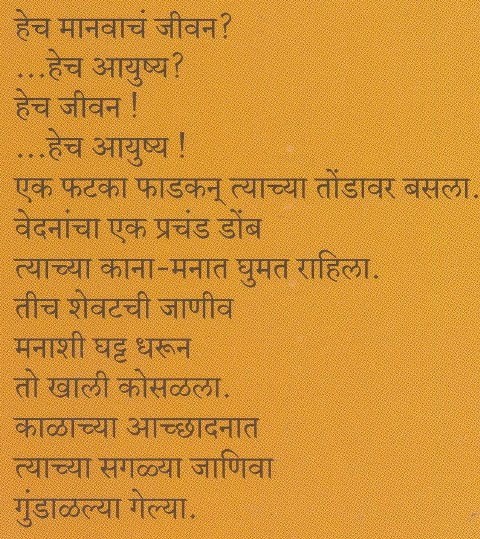 हेच मानवाचं जीवन?
...हेच आयुष्य?
हेच जीवन !
...हेच आयुष्य !
एक फटका फाडकन् त्याच्या तोंडावर बसला.
वेदनांचा एक प्रचंड डोंब
त्याच्या काना-मनात घुमत राहिला.
तीच शेवटची जाणीव
मनाशी घट्ट धरून
तो खाली कोसळला.
काळाच्या आच्छादनात
त्याच्या सगळ्या जाणिवा
गुंडाळल्या गेल्या.